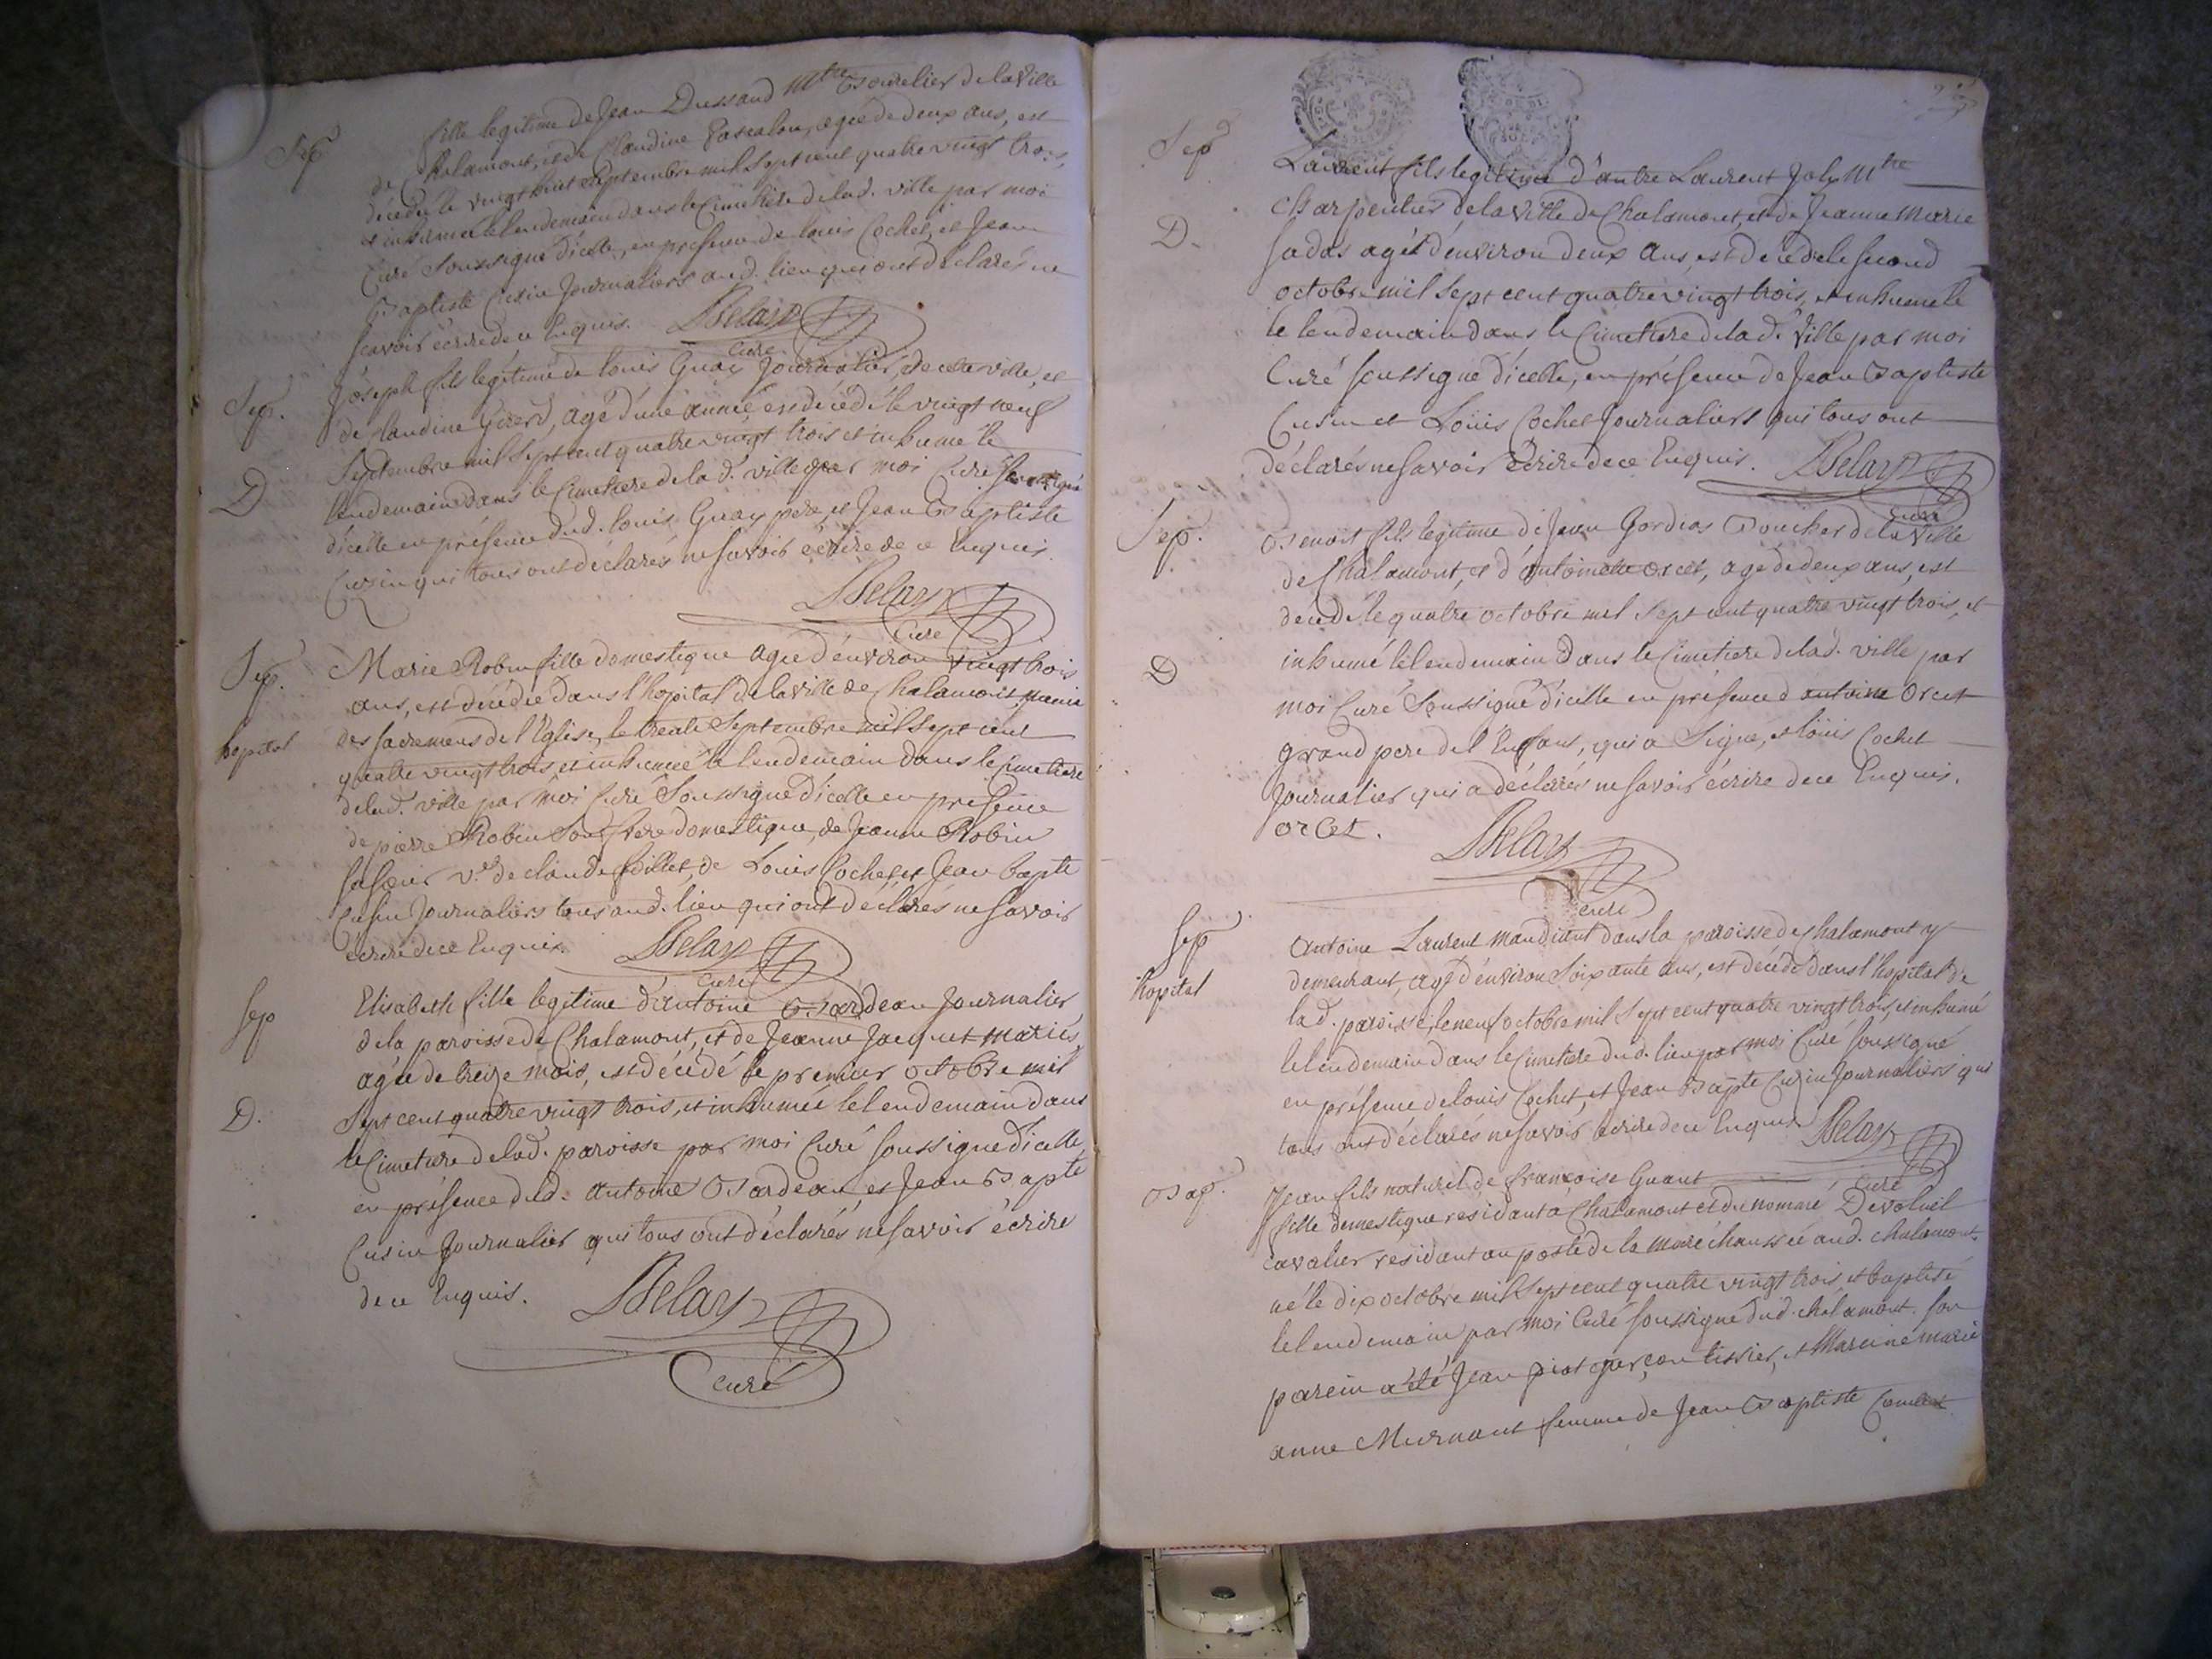 Sep
fille legitime de Jean Dussaud Mtre Bourelier de la ville
de Chalamont, et de Claudine Pascalon, agée de deux ans, est
décédée le vingt huit Septembre mil sept cent quatre vingt trois,
et inhumée le lendemain dans le Cimetiere de lad. ville par moi
Curé Soussigné d'icelle, en presence de louis Cochet, et Jean
Baptiste Cusin Journaliers aud. lieu qui ont déclarés ne
scavoir écrire de ce Enquis. Delay
Curé
Sep.
D
Joseph fils legitime de louis Guay Journalier, de cette ville, et
de Claudine Girerd, agé d'une année, est décédé le vingt neuf
Septembre mil sept cent quatre vingt trois et inhumé le
lendemain dans le Cimetiere de la d. ville par moi Curé Soussigné
d'icelle en présence dud. louis Guay pere, et Jean Baptiste
Cusin qui tous ont déclarés ne savoir écrire de ce Enquis.
Delay
Curé
Sep.
hopital
Marie Robin fille domestique agée d'environ vingt trois
ans, est décédée dans l'hopital de la ville de Chalamont munie
des sacremens de l'Eglise, le trente Septembre mil sept cent
quatre vingt trois et inhumée le lendemain dans le Cimetiere
de lad. ville par moi Curé Soussigné d'icelle en presence
de pierre Robin Son frere domestique, de Jeanne Robin
sa Soeur v.e de claude fillet, de Louis Cochet et Jean bapte
Cusin Journaliers tous aud. lieu qui ont déclarés ne savoir
écrire de ce Enquis. Delay
Curé
Sep
D.
Elisabeth fille legitime d'antoine Bardeau Journalier
de la paroisse de Chalamont, et de Jeanne Jacquet mariés,
agée de treize mois, est décédé le premier octobre mil
Sept cent quatre vingt trois, et inhumée le lendemain dans
le Cimetiere de lad. paroisse par moi Curé soussigné d'icelle,
en présence dud. Antoine Bardeau et Jean Bapte
Cusin Journalier qui tous ont déclarés ne savoir écrire
de ce Enquis. Delay
Curé
Sep
D.
Laurent fils legitime d'autre Laurent Joly Mtre
Charpentier de la ville de Chalamont, et de Jeanne Marie
Sadas agé d'environ deux ans, est décédé le second
octobre mil sept cent quatre vingt trois, et inhumé le
le lendemain dans le Cimetiere de la d. ville par moi
Curé soussigné d'icelle, en présence de Jean Baptiste
Cusin et Loüis Cochet Journaliers qui tous ont
déclarés ne savoir Ecrire de ce Enquis. Delay
Curé
Sep.
D
Benoit fils legitime de Jean Gordias Boucher de la ville
de Chalamont, et d'antoinette orcet, agé de deux ans, est
décédé le quatre octobre mil sept cent quatre vingt trois, et
inhumé le lendemain dans le Cimetiere de lad. ville par
moi Curé Soussigné d'icelle en présence d'antoine Orcet
grand pere de l'Enfant, qui a Signé, et loüis Cochet
Journalier qui a déclarés ne savoir écrire de ce Enquis.
orcet. Delay
Curé
Sep
hopital
Antoine Laurent mandiant dans la paroisse de Chalamont y
demeurant, agé d'environ Soixante ans, est décédé dans l'hopital de
la d. paroisse, le neuf octobre mil sept cent quatre vingt trois, et inhumé
le lendemain dans le Cimetiere dud. lieu par moi Curé soussigné
en présence de louis Cochet, et Jean Bapte Cusin Journaliers qui
tous ont déclarés ne savoir écrire de ce Enquis. Delay
Curé
Bap.
Jean fils naturel de francoise Guant
fille domestique residant à Chalamont et du nommé Devoluet
Cavalier residant au poste de la maréchaussée aud. Chalamont.
né le dix octobre mil sept cent quatre vingt trois et baptisé
le lendemain par moi Curé soussigné dud. chalamont. son
parein a été Jean piot garçon tissier, et Mareine marie
anne Murnant femme de Jean Baptiste